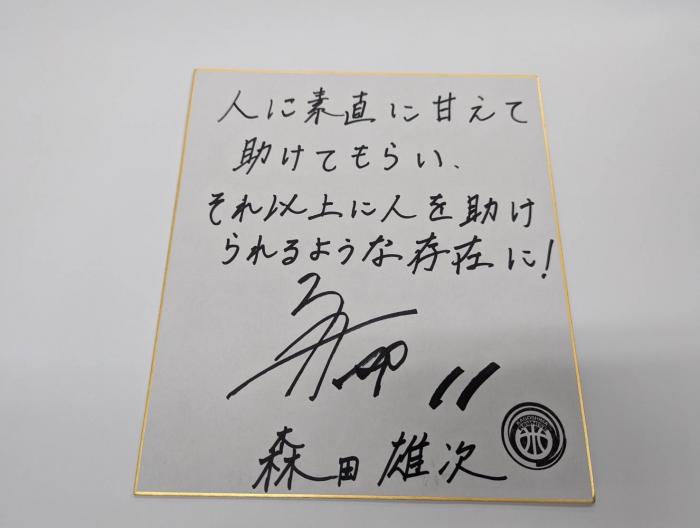 人に素直に甘えて
助けてもらい、
それ以上に人を助け
られるような存在に!
11
森田雄次